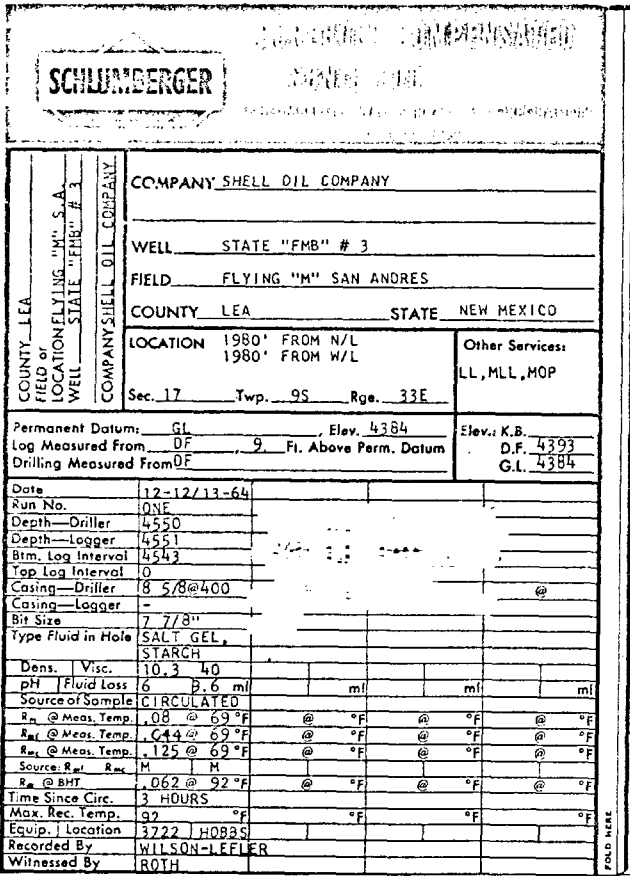 SCHLUMBERGER
COUNTY LEA
FIELD or
LOCATION FLYING "M" S.A.
WELL STATE "FMB" # 3
COMPANY SHELL OIL COMPANY
COMPANY SHELL OIL COMPANY
WELL STATE "FMB" # 3
FIELD FLYING "M" SAN ANDRES
COUNTY LEA STATE NEW MEXICO
LOCATION 1980' FROM N/L
1980' FROM W/L
Sec. 17 Twp. 9S Rge. 33E
Other Services:
LL,MLL,MOP
Permanent Datum: GL, Elev. 4384
Log Measured From DF, 9. Ft. Above Perm. Datum
Drilling Measured From DF
Elev.: K.B.
D.F. 4393
G.L. 4384
Date 12-12/13-64
Run No. ONE
Depth—Driller 4550
Depth—Logger 4551
Btm. Log Interval 4543
Top Log Interval 0
Casing—Driller 8 5/8@400 @
Casing—Logger -
Bit Size 7 7/8"
Type Fluid in Hole SALT GEL,
STARCH
Dens. Visc. 10.3 40
pH Fluid Loss 6 ml ml ml
Source of Sample CIRCULATED
Rm @ Meas. Temp. .08 @ 69 °F @ °F @ °F @ °F
Rmf @ Meas. Temp. .044 @ 69 °F @ °F @ °F @ °F
Rmc @ Meas. Temp. .125 @ 69 °F @ °F @ °F @ °F
Source: Rmf Rmc M M
Rm @ BHT .062 @ 92 °F @ °F @ °F @ °F
Time Since Circ. 3 HOURS
Max. Rec. Temp. 92 °F °F °F °F
Equip. Location 3722 HOBBS
Recorded By WILSON-LEFLER
Witnessed By ROTH
FOLD HERE